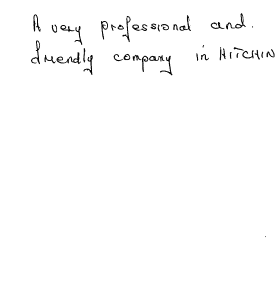 A very professional and.
friendly company in HITCHIN